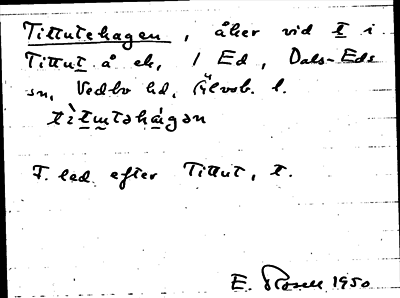 Tittutehagen, åker vid t i
Tittut å ek, 1 Ed, Dals-Eds
sn, Vedbo hd, Älvsb. l.
F. led. efter Tittut, t.
E. Rosell 1950